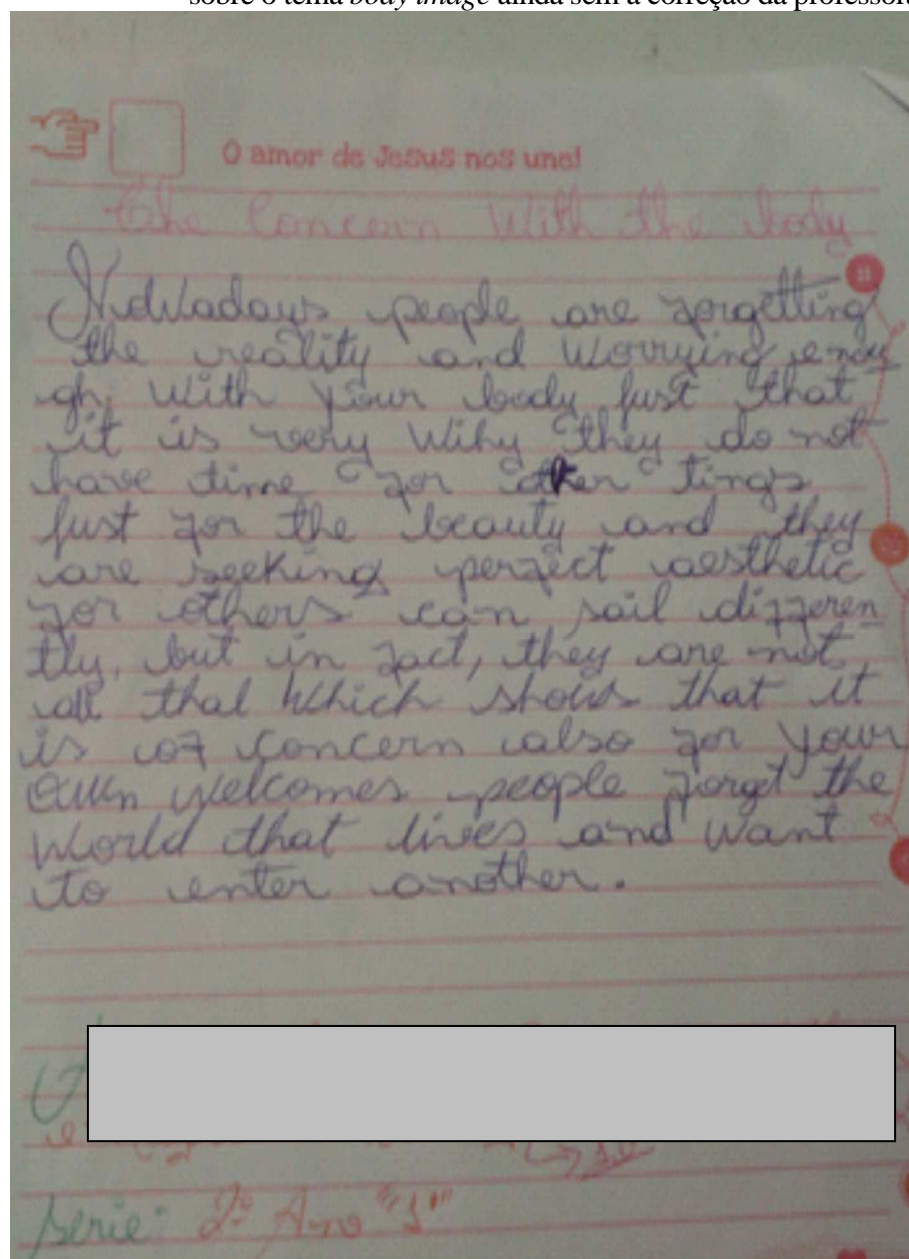 sobre o tema body image ainda sem a correção da professora
O amor de Jesus nos une!
The Concern With the body
Nowadays people are forgetting
the reality and worrying enou
gh, with your body just that
it is very why they do not
have time for other tings
just for the beauty and they
are seeking perfect aesthetic
for others can sail differen
tly, but in fact, they are not
all that which shows that it
is of concern also for your
own welcomes people forget the
world that lives and want
to enter another.
Serie: 2º Ano "1"